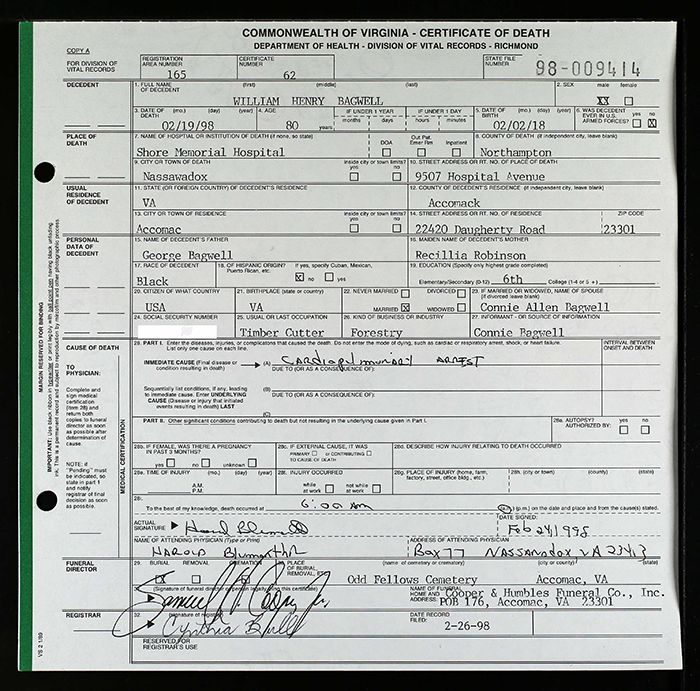 COMMONWEALTH OF VIRGINIA - CERTIFICATE OF DEATH
DEPARTMENT OF HEALTH - DIVISION OF VITAL RECORDS - RICHMOND
COPY A
FOR DIVISION OF VITAL RECORDS
REGISTRATION AREA NUMBER 165
CERTIFICATE NUMBER 62
STATE FILE NUMBER 98-009414
DECEDENT
1. FULL NAME OF DECEDENT (first) (middle) (last)
WILLIAM HENRY BAGWELL
2. SEX male female
XX
3. DATE OF DEATH (mo.) (day) (year)
02/19/98
4. AGE
80 years
IF UNDER 1 YEAR months days
IF UNDER 1 DAY hours minutes
5. DATE OF BIRTH (mo.) (day) (year)
02/02/18
6. WAS DECEDENT EVER IN U.S. ARMED FORCES? yes no
X
PLACE OF DEATH
7. NAME OF HOSPITAL OR INSTITUTION OF DEATH (if none, so state)
Shore Memorial Hospital
DOA
Out Pat. Emer Rm
Inpatient
8. COUNTY OF DEATH (if independent city, leave blank)
Northampton
9. CITY OR TOWN OF DEATH
inside city or town limits? yes no
Nassawadox
10. STREET ADDRESS OR RT. NO. OF PLACE OF DEATH
9507 Hospital Avenue
USUAL RESIDENCE OF DECEDENT
11. STATE (OR FOREIGN COUNTRY) OF DECEDENT'S RESIDENCE
VA
12. COUNTY OF DECEDENT'S RESIDENCE (if independent city, leave blank)
Accomack
13. CITY OR TOWN OF RESIDENCE
inside city or town limits? yes no
Accomac
14. STREET ADDRESS OR RT. NO. OF RESIDENCE
22420 Daugherty Road
ZIP CODE
23301
PERSONAL DATA OF DECEDENT
15. NAME OF DECEDENT'S FATHER
George Bagwell
16. MAIDEN NAME OF DECEDENT'S MOTHER
Recillia Robinson
17. RACE OF DECEDENT
Black
18. OF HISPANIC ORIGIN? If yes, specify Cuban, Mexican, Puerto Rican, etc.
X no yes
19. EDUCATION (Specify only highest grade completed)
Elementary/Secondary (0-12) 6th College (1-4 or 5+)
20. CITIZEN OF WHAT COUNTRY
USA
21. BIRTHPLACE (state or country)
VA
22. NEVER MARRIED DIVORCED
MARRIED X WIDOWED
23. IF MARRIED OR WIDOWED, NAME OF SPOUSE (if divorced leave blank)
Connie Allen Bagwell
24. SOCIAL SECURITY NUMBER
25. USUAL OR LAST OCCUPATION
Timber Cutter
26. KIND OF BUSINESS OR INDUSTRY
Forestry
27. INFORMANT - OR SOURCE OF INFORMATION
Connie Bagwell
CAUSE OF DEATH
TO PHYSICIAN:
Complete and sign medical certification (item 28) and return both copies to funeral director as soon as possible after determination of cause.
NOTE: If "Pending" must be indicated, so state in part 1 and notify registrar of final decision as soon as possible.
MARGIN RESERVED FOR BINDING
MEDICAL CERTIFICATION
28. PART I. Enter the diseases, injuries, or complications that caused death. Do not enter the mode of dying, such as cardiac or respiratory arrest, shock, or heart failure. List only one cause on each line.
INTERVAL BETWEEN ONSET AND DEATH
IMMEDIATE CAUSE (Final disease or condition resulting in death) (A) CARDIOPULMONARY ARREST
DUE TO (OR AS A CONSEQUENCE OF):
Sequentially list conditions, if any, leading to immediate cause. Enter UNDERLYING CAUSE (Disease or injury that initiated events resulting in death) LAST
(B)
DUE TO (OR AS A CONSEQUENCE OF):
(C)
PART II. Other significant conditions contributing to death but not resulting in the underlying cause given in Part I.
28a. AUTOPSY? yes no
AUTHORIZED BY:
28b. IF FEMALE, WAS THERE A PREGNANCY IN PAST 3 MONTHS?
yes no unknown
28c. IF EXTERNAL CAUSE, IT WAS
PRIMARY or CONTRIBUTING TO CAUSE OF DEATH
28d. DESCRIBE HOW INJURY RELATED TO DEATH OCCURRED
28e. TIME OF INJURY (mo.) (day) (year)
A.M.
P.M.
28f. INJURY OCCURRED
while at work not while at work
28g. PLACE OF INJURY (home, farm, factory, street, office bldg., etc.)
28h. (city or town) (county) (state)
28i.
To the best of my knowledge, death occurred at 6:00 am (p.m.) on the date and place and from the cause(s) stated.
ACTUAL SIGNATURE
DATE SIGNED:
Feb 24 1998
NAME OF ATTENDING PHYSICIAN (Type or Print)
HAROLD
ADDRESS OF ATTENDING PHYSICIAN
Box 77 NASSAWADOX VA 23413
FUNERAL DIRECTOR
29. BURIAL REMOVAL CREMATION
X
30. PLACE OF BURIAL, REMOVAL, ETC.
(city or county) (state)
Odd Fellows Cemetery Accomac, VA
(Signature of funeral director or person legally filing this certificate)
NAME OF FUNERAL HOME AND ADDRESS:
Cooper & Humbles Funeral Co., Inc.
POB 176, Accomac, VA 23301
REGISTRAR
32. (Signature of registrar)
DATE RECORD FILED:
2-26-98
RESERVED FOR REGISTRAR'S USE
VS 2 1/89